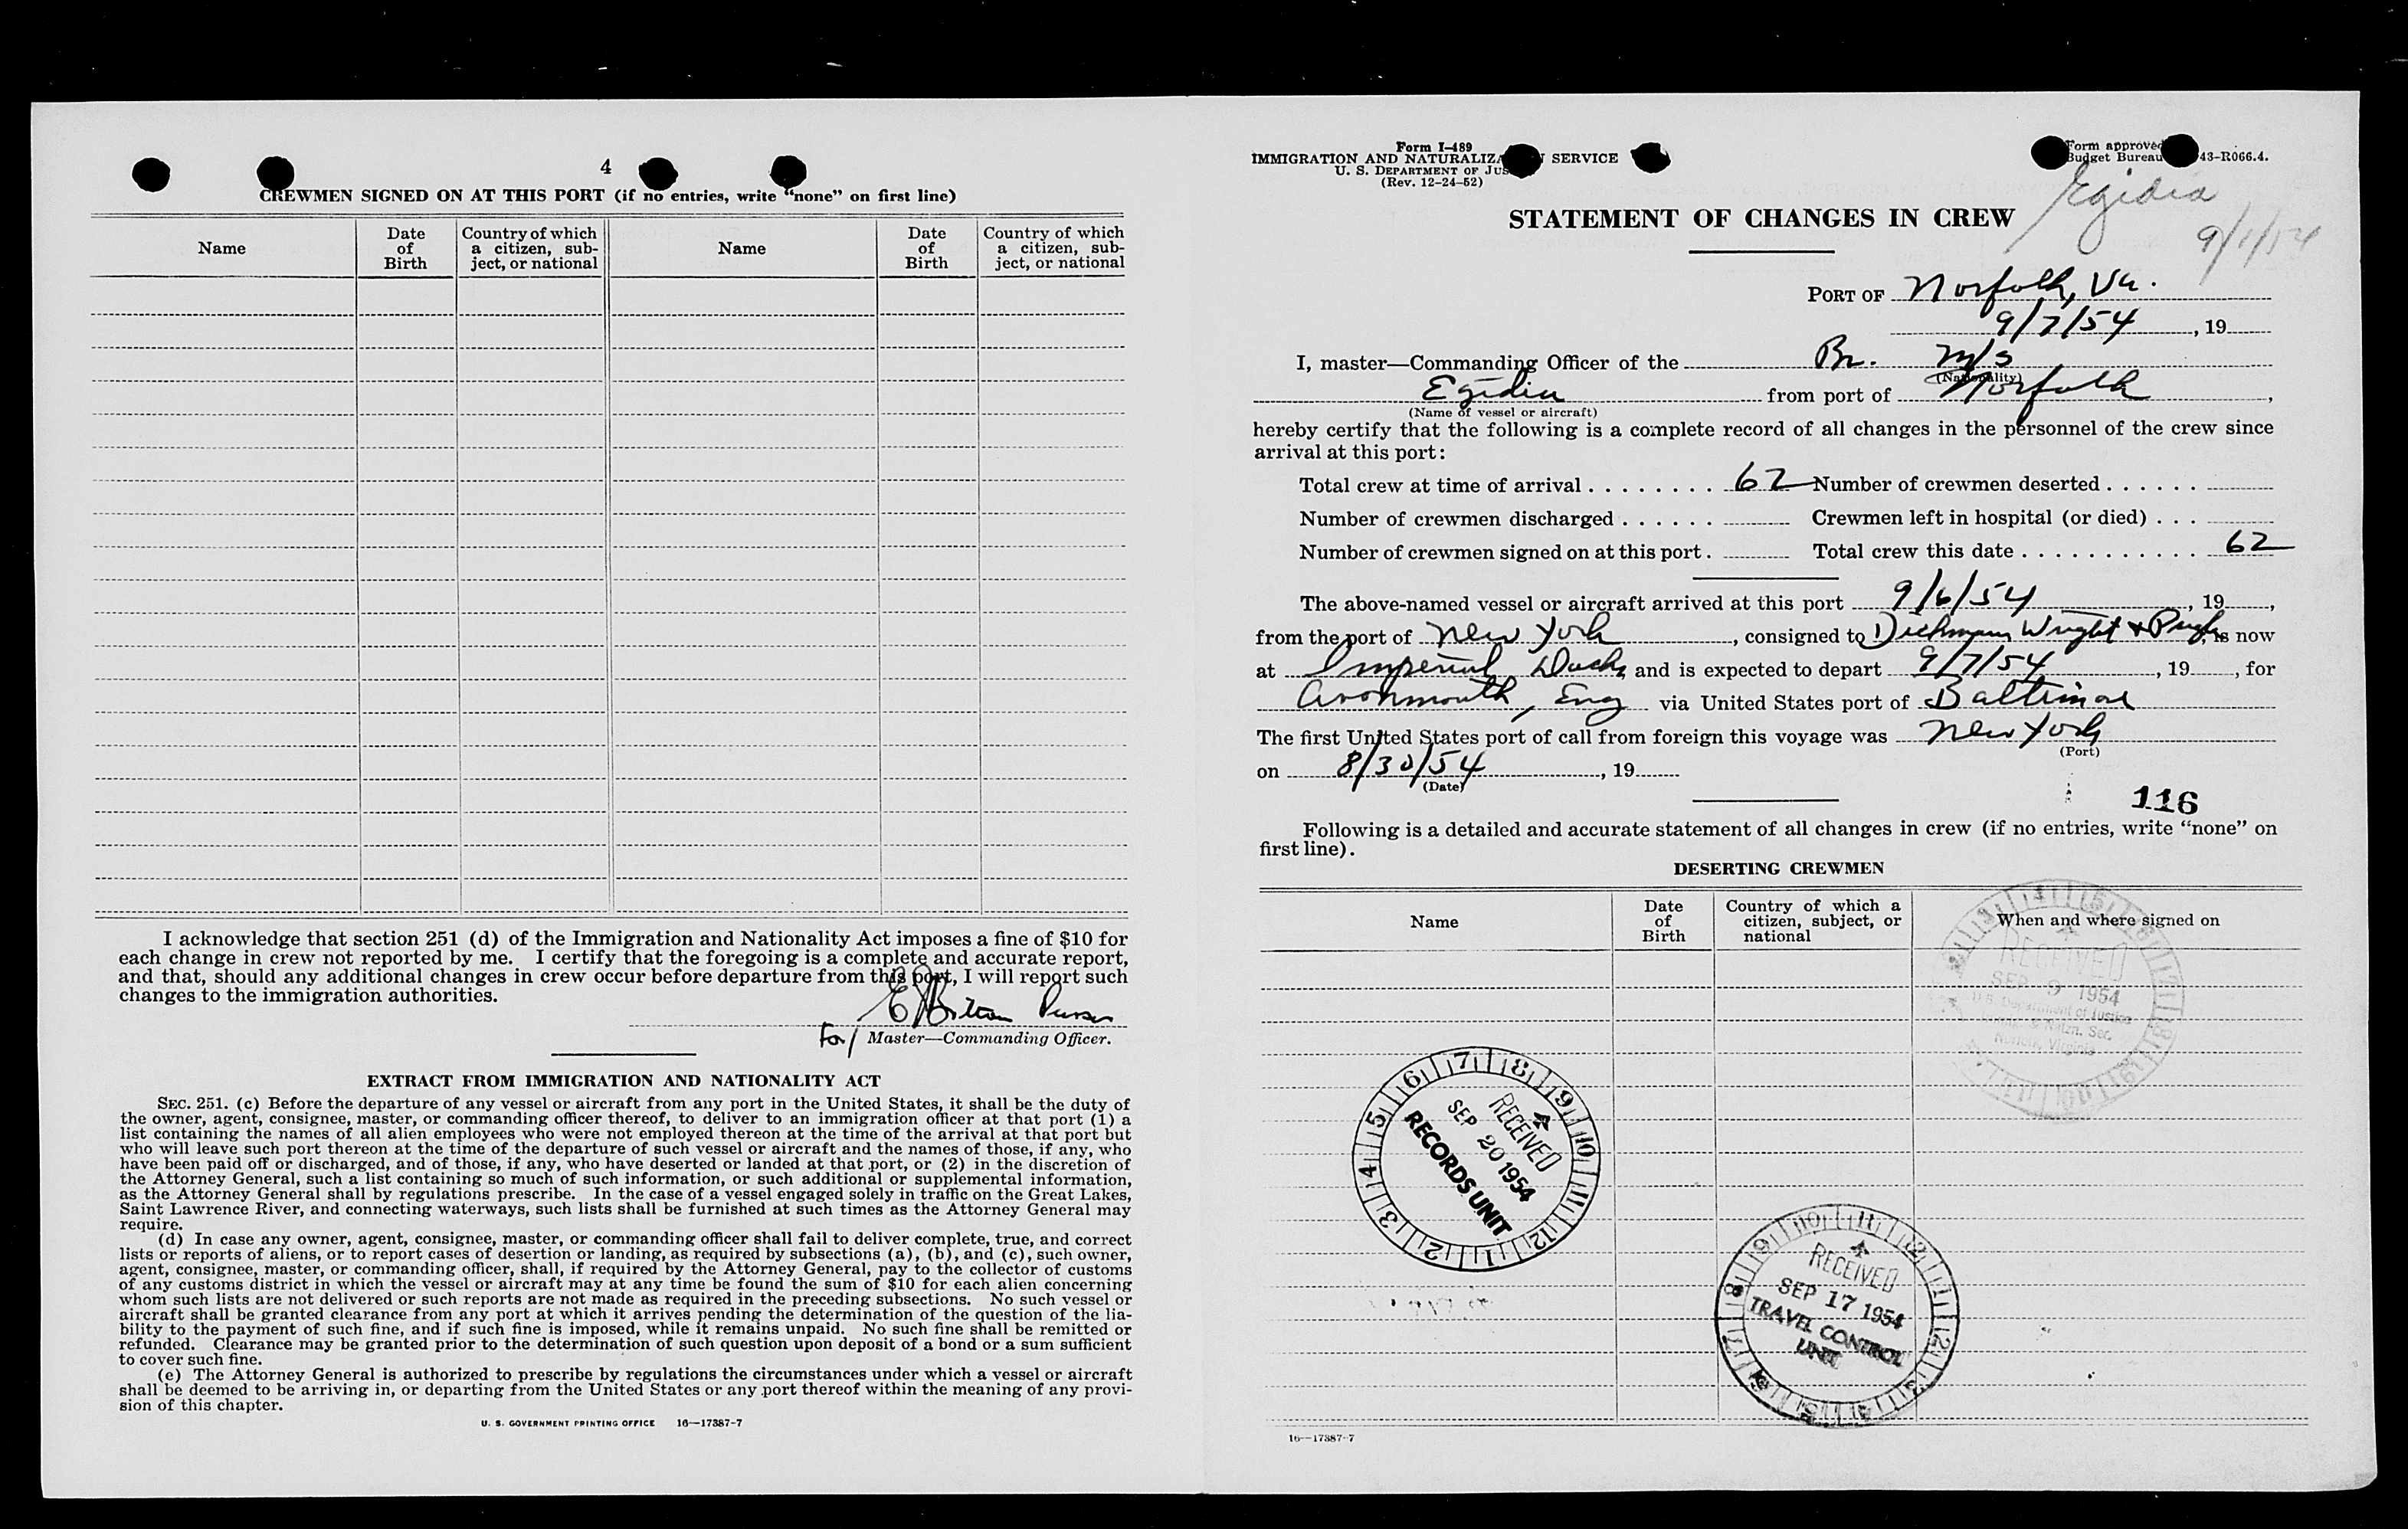 4
CREWMEN SIGNED ON AT THIS PORT (if no entries, write "none" on first line)
Name
Date of Birth
Country of which a citizen, sub-
ject, or national
Name
Date of Birth
Country of which a citizen, sub-
ject, or national
I acknowledge that section 251 (d) of the Immigration and Nationality Act imposes a fine of $10 for
each change in crew not reported by me. I certify that the foregoing is a complete and accurate report,
and that, should any additional changes in crew occur before departure from this port, I will report such
changes to the immigration authorities.
Purser
For/ Master—Commanding Officer.
EXTRACT FROM IMMIGRATION AND NATIONALITY ACT
SEC. 251. (c) Before the departure of any vessel or aircraft from any port in the United States, it shall be the duty of
the owner, agent, consignee, master, or commanding officer thereof, to deliver to an immigration officer at that port (1) a
list containing the names of all alien employees who were not employed thereon at the time of the arrival at that port but
who will leave such port thereon at the time of the departure of such vessel or aircraft and the names of those, if any, who
have been paid off or discharged, and of those, if any, who have deserted or landed at that port, or (2) in the discretion of
the Attorney General, such a list containing so much of such information, or such additional or supplemental information,
as the Attorney General shall by regulations prescribe. In the case of a vessel engaged solely in traffic on the Great Lakes,
Saint Lawrence River, and connecting waterways, such lists shall be furnished at such times as the Attorney General may
require.
(d) In case any owner, agent, consignee, master, or commanding officer shall fail to deliver complete, true, and correct
lists or reports of aliens, or to report cases of desertion or landing, as required by subsections (a), (b), and (c), such owner,
agent, consignee, master, or commanding officer, shall, if required by the Attorney General, pay to the collector of customs
of any customs district in which the vessel or aircraft may at any time be found the sum of $10 for each alien concerning
whom such lists are not delivered or such reports are not made as required in the preceding subsections. No such vessel or
aircraft shall be granted clearance from any port at which it arrives pending the determination of the question of the lia-
bility to the payment of such fine, and if such fine is imposed, while it remains unpaid. No such fine shall be remitted or
refunded. Clearance may be granted prior to the determination of such question upon deposit of a bond or a sum sufficient
to cover such fine.
(e) The Attorney General is authorized to prescribe by regulations the circumstances under which a vessel or aircraft
shall be deemed to be arriving in, or departing from the United States or any port thereof within the meaning of any provi-
sion of this chapter.
U. S. GOVERNMENT PRINTING OFFICE 16—17387-7
Form I-489
IMMIGRATION AND NATURALIZA SERVICE
U. S. DEPARTMENT OF JUS
(Rev. 12-24-52)
Form approved
Budget Bureau 43-R066.4.
Egidia
9/7/54
STATEMENT OF CHANGES IN CREW
PORT OF Norfolk, Va.
9/7/54, 19
I, master—Commanding Officer of the Br. M/S
(Nationality)
Egidia from port of Norfolk,
(Name of vessel or aircraft)
hereby certify that the following is a complete record of all changes in the personnel of the crew since
arrival at this port:
Total crew at time of arrival . . . . . . . . 62 Number of crewmen deserted . . . . . .
Number of crewmen discharged . . . . . . Crewmen left in hospital (or died) . . .
Number of crewmen signed on at this port . Total crew this date . . . . . . . . . . . 62
The above-named vessel or aircraft arrived at this port 9/6/54, 19,
from the port of New York, consigned to Dichmann Wright & Pugh, is now
at Imperial Docks and is expected to depart 9/7/54, 19, for
Avonmouth, Eng via United States port of Baltimore
The first United States port of call from foreign this voyage was New York
(Port)
on 8/30/54, 19
(Date)
116
Following is a detailed and accurate statement of all changes in crew (if no entries, write "none" on
first line).
DESERTING CREWMEN
Name
Date of Birth
Country of which a citizen, subject, or national
When and where signed on
RECEIVED
SEP 9 1954
U.S. Department of Justice
Norfolk, Virginia
RECEIVED
SEP 20 1954
RECORDS UNIT
RECEIVED
SEP 17 1954
TRAVEL CONTROL
UNIT
16—17387-7